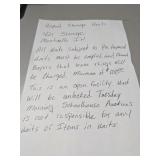 Unpaid Storage Units
S&S Storage
Monticello Il
All Units subject to the payment
Units must be emptied and cleaned
Buyers that leave things will
be Charged. Minimum of
This is an open facility that
Will be unlocked Tuesday
Morning. Schoolhouse Auctions
is not responsible for any
Units or Items in Units